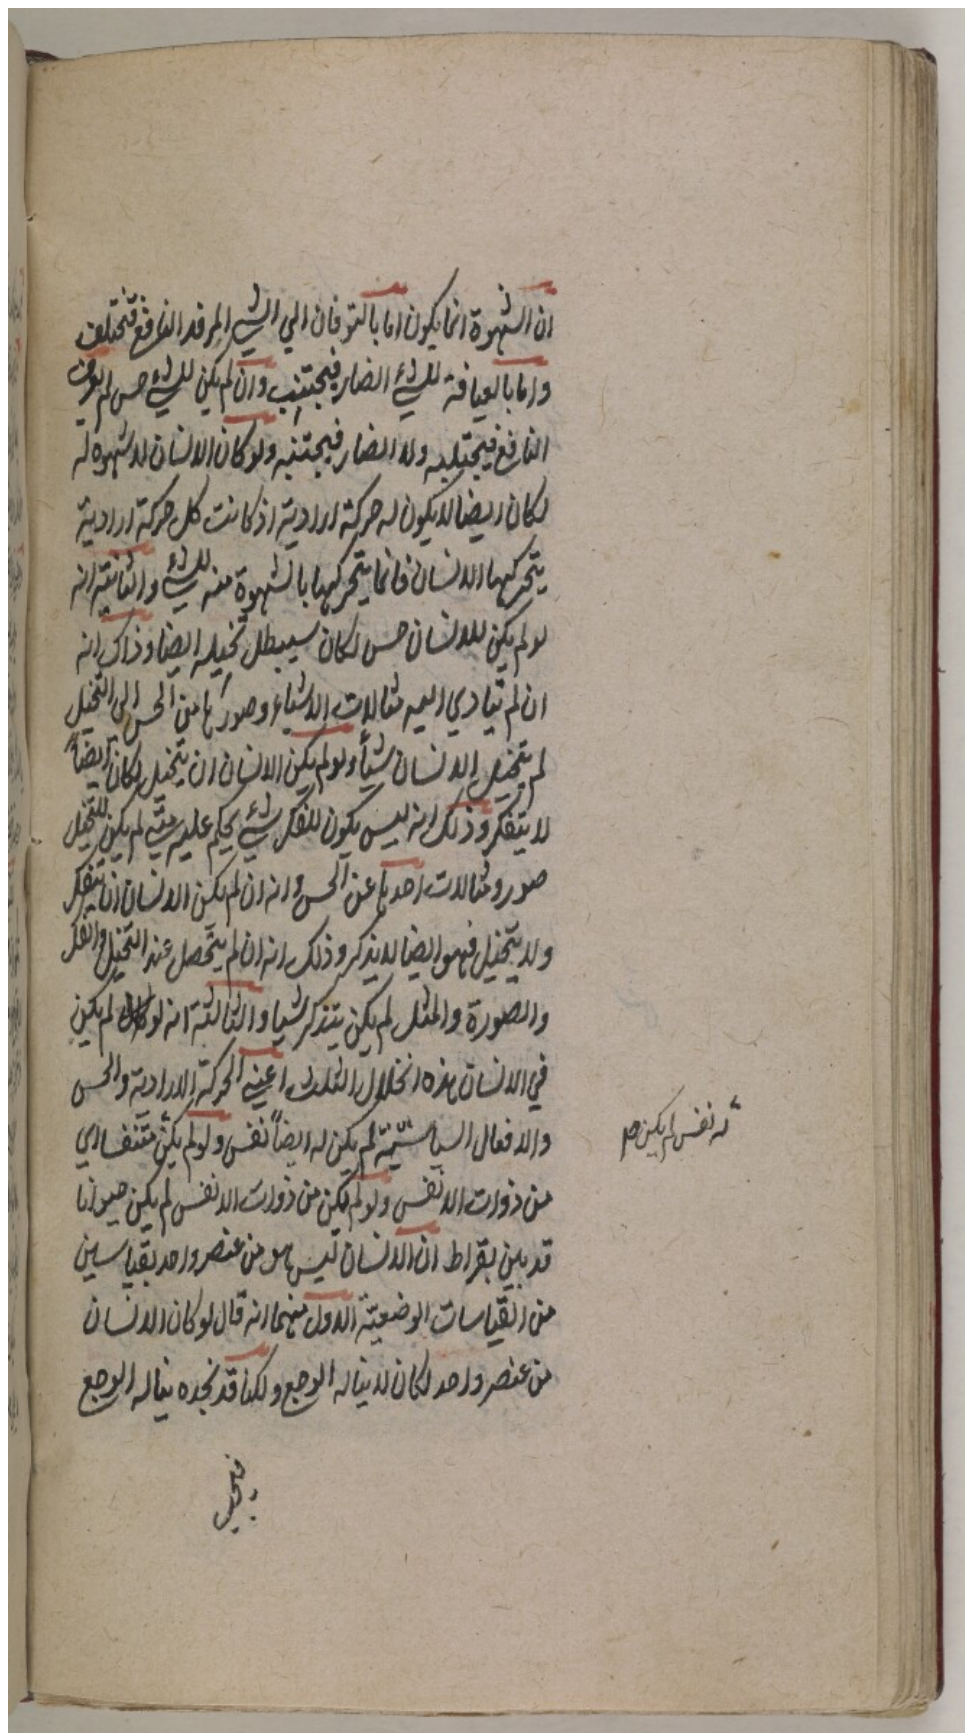 ان الشهوة انما يكون اما بالتوقان الي الشيء المرفد النافع فتختلف
واما بالعيافة للشيء الضار فيجتنب وان لم يكن للشيء حس لم يعرف
النافع فيجتلبه ولا الضار فيجتنبه ولو كان الانسان لا شهوة له
لكان ايضا لا يكون له حركة ارادية اذ كانت كل حركة ارادية
يتحركها الانسان فانما يتحركها بالشهوة منه للشيء والثانية انه
لو لم يكن للانسان حس لكان سيبطل تخيله ايضا وذاك انه
ان لم تتادي اليه مثالات الاشياء وصورها من الحس الى التخيل
لم يتخيل الانسان شيأ ولو لم يكن الانسان ان يتخيل لكان ايضاً
لا يتفكر وذلك انه ليس يكون للفكر شيء يحكم عليه متى لم يكن للتخيل
صور ومثالات احدها عن الحس وانه ان لم يكن الانسان ان يتفكر
ولا يتخيل فهو ايضا لا يذكر وذلك انه ان لم يتحصل عند التخيل والفكر
والصورة والمثل لم يكن يتذكر شيا والثالثة انه لو لم يكن
في الانسان هذه الخلال الثلث اعني الحركة الارادية والحس
والافعال السياسية لم يكن له ايضاً نفس ولو لم يكن متنفسا اي
من ذوات الانفس ولو لم يكن من ذوات الانفس لم يكن حيوانا
قد بين بقراط ان الانسان ليس هو من عنصر واحد بقياسين
من القياسات الوضعية الاول منهما انه قال لو كان الانسان
من عنصر واحد لكان لا يناله الوجع ولكنا قد نجده يناله الوجع
له نفس لم يكن صح
فيجب